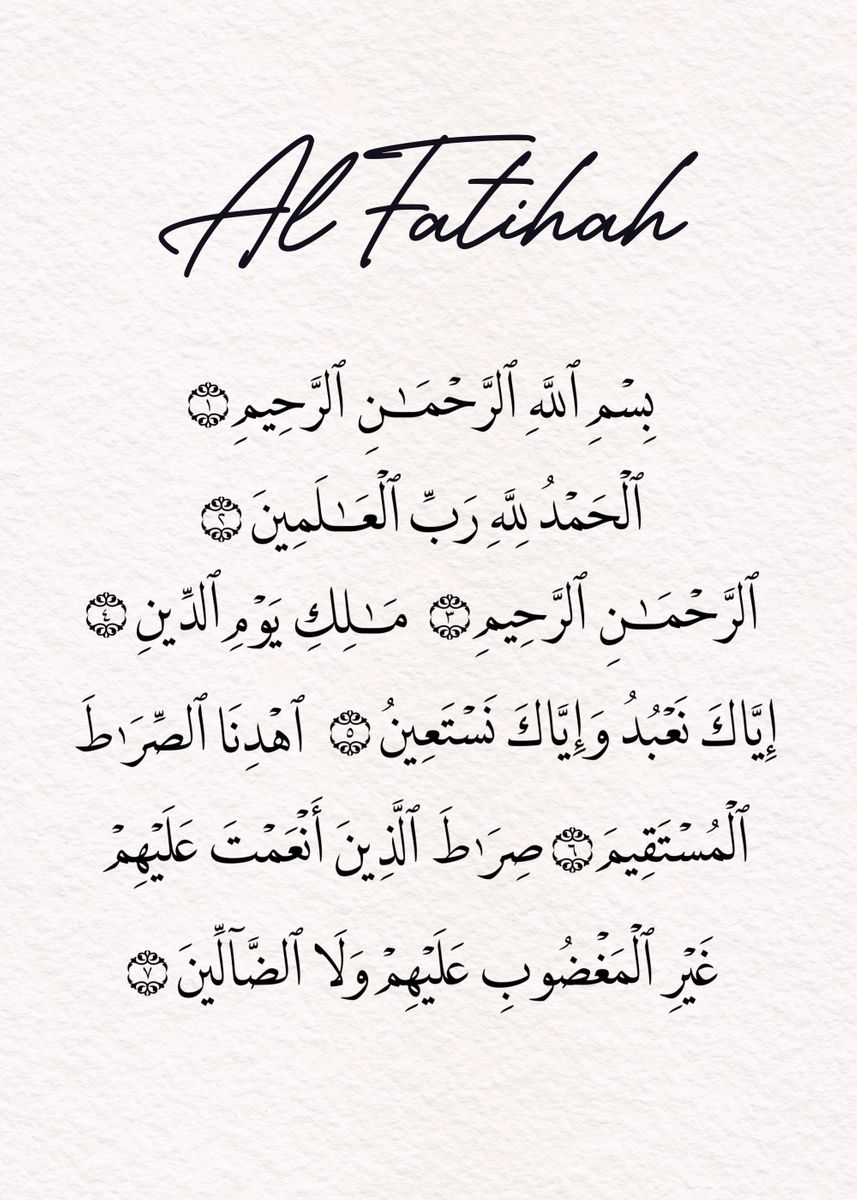 Al Fatihah
بِسْمِ ٱللَّهِ ٱلرَّحْمَـٰنِ ٱلرَّحِيمِ ١
ٱلْحَمْدُ لِلَّهِ رَبِّ ٱلْعَـٰلَمِينَ ٢
ٱلرَّحْمَـٰنِ ٱلرَّحِيمِ ٣ مَـٰلِكِ يَوْمِ ٱلدِّينِ ٤
إِيَّاكَ نَعْبُدُ وَإِيَّاكَ نَسْتَعِينُ ٥ ٱهْدِنَا ٱلصِّرَٰطَ
ٱلْمُسْتَقِيمَ ٦ صِرَٰطَ ٱلَّذِينَ أَنْعَمْتَ عَلَيْهِمْ
غَيْرِ ٱلْمَغْضُوبِ عَلَيْهِمْ وَلَا ٱلضَّآلِّينَ ٧